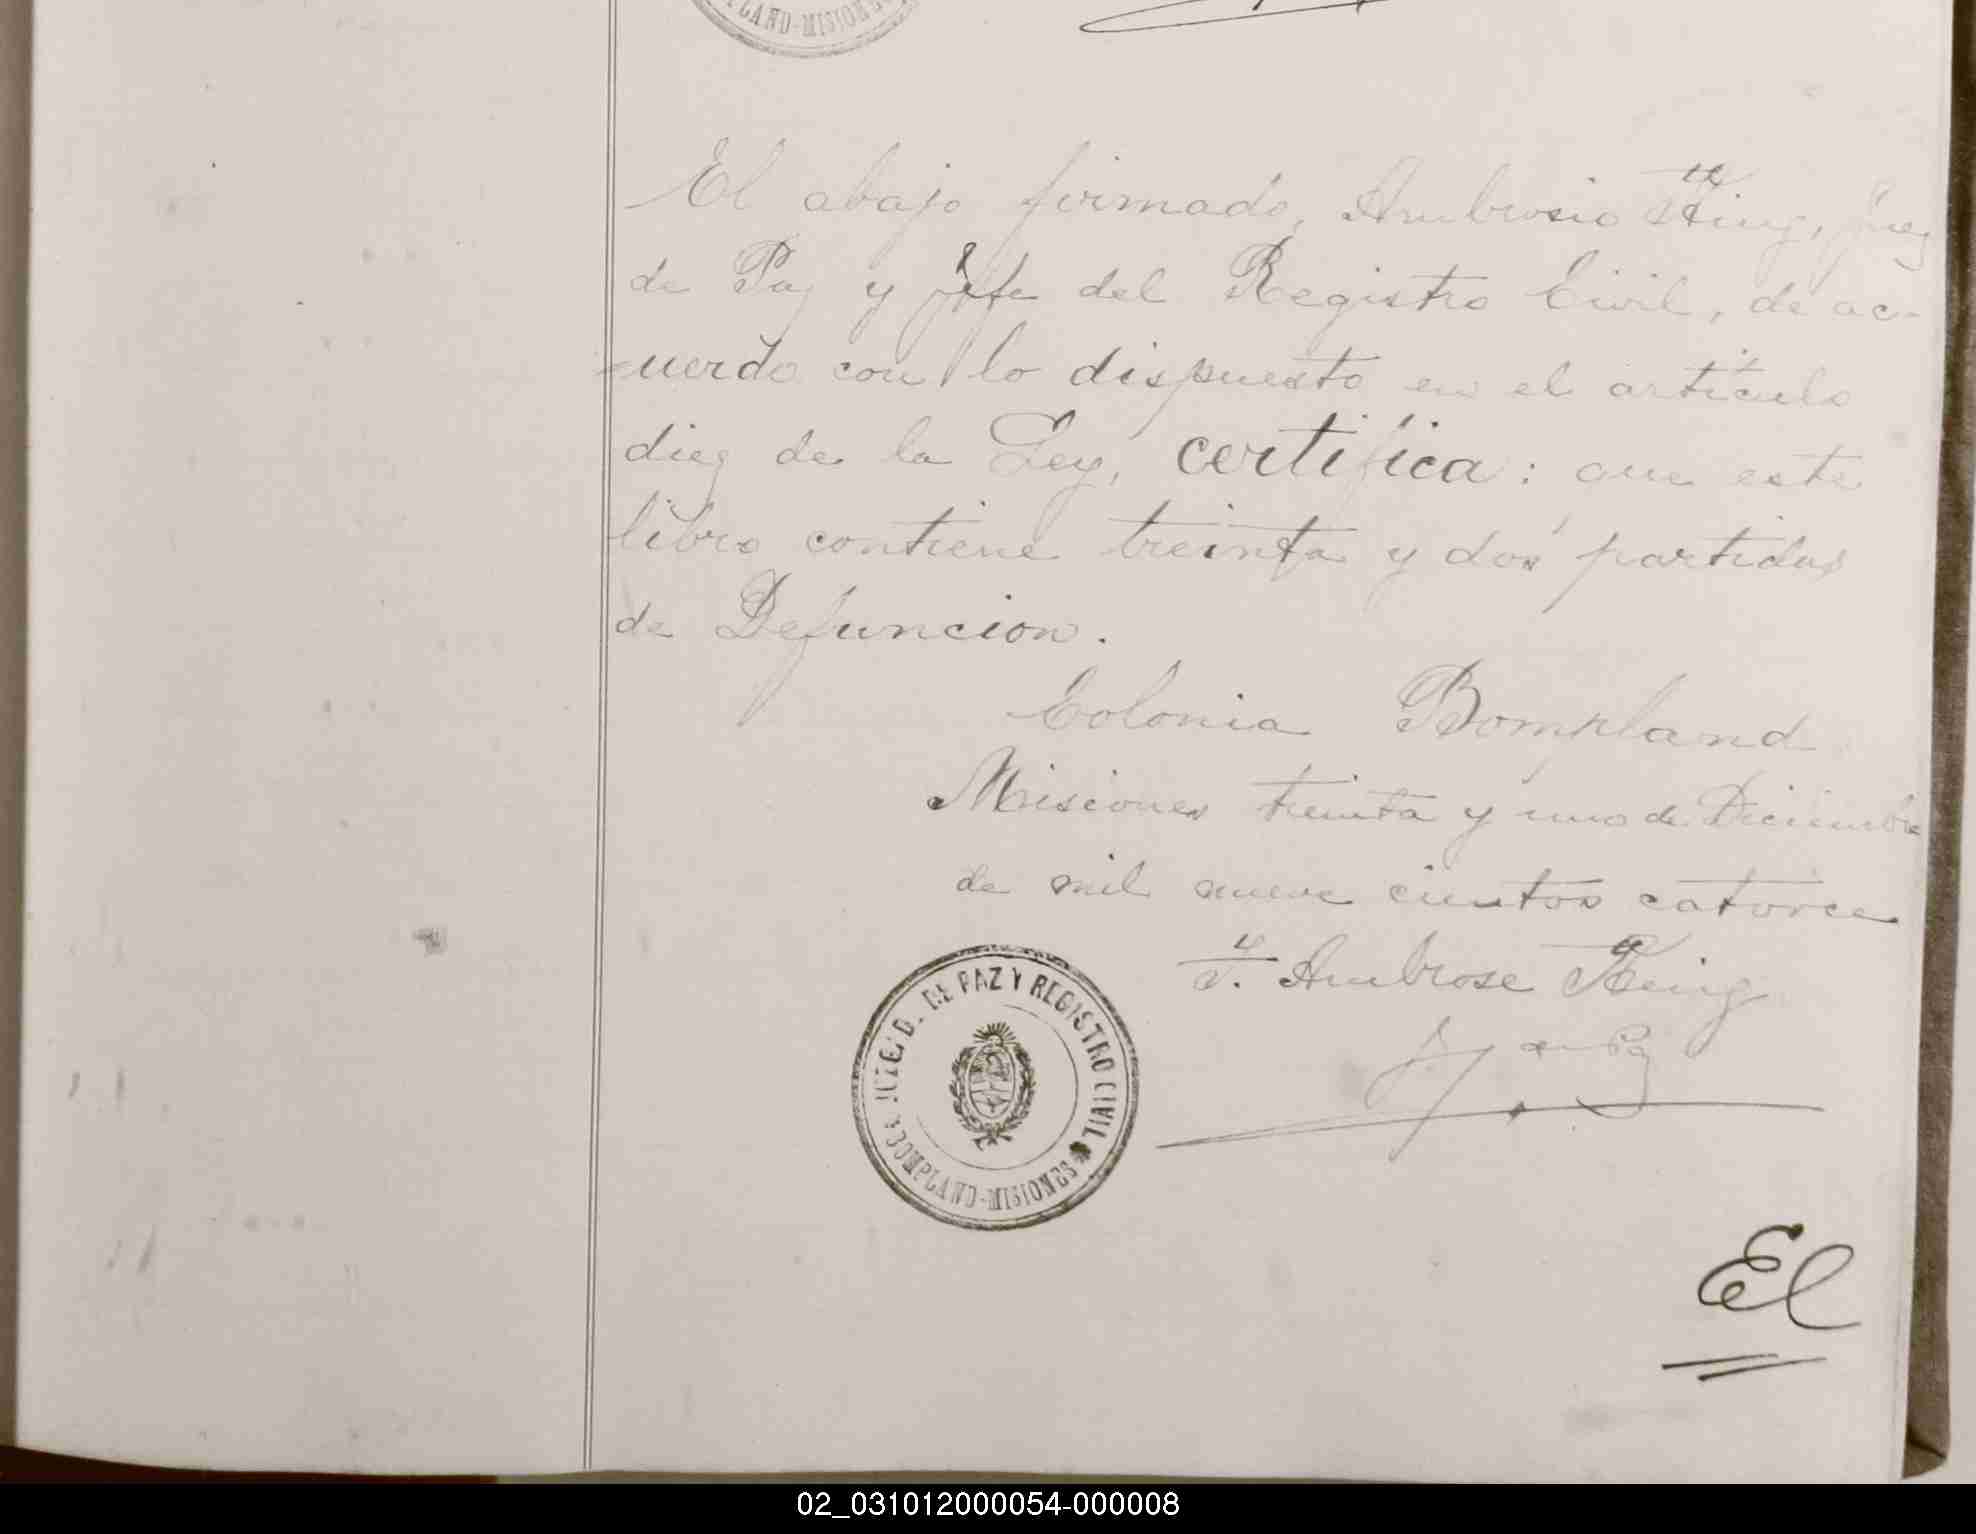 PLAND-MISIONES
El abajo firmado, Ambrosio King, Juez
de Paz y jefe del Registro Civil, de ac-
=uerdo con lo dispuesto en el artículo
diez de la Ley, certifica: que este
libro contiene treinta y dos partidas
de Defuncion.
Colonia Bompland
Misiones treinta y uno de Diciembre
de mil nueve cientos catorce
Ambrose King
J. de Paz
DE PAZ Y REGISTRO CIVIL
BOMPLAND-MISIONES
El
02_031012000054-000008